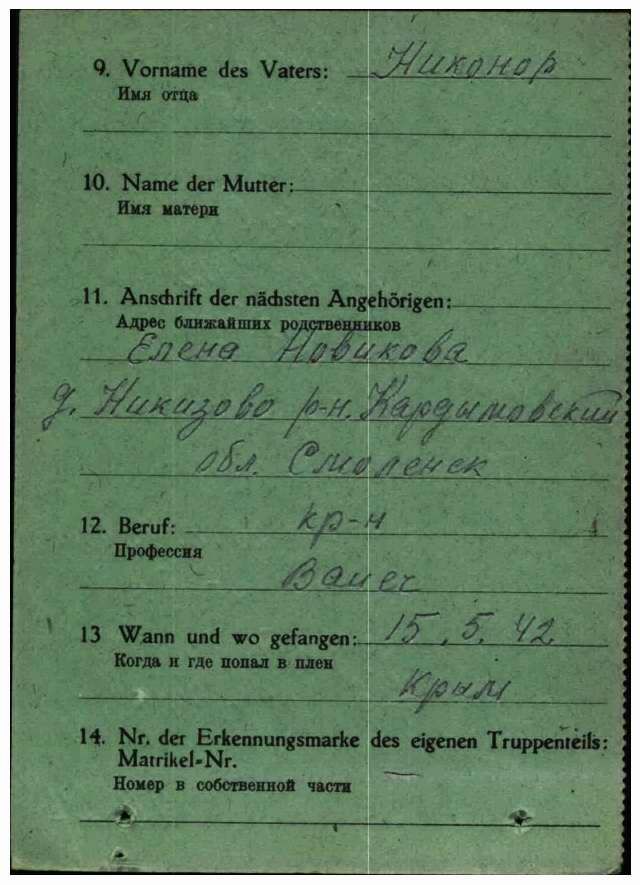 9. Vorname des Vaters: Никонор
Имя отца
10. Name der Mutter:
Имя матери
11. Anschrift der nächsten Angehörigen:
Адрес ближайших родственников
Елена Новикова
д. Никизово р-н. Кардымовский
обл. Смоленск
12. Beruf: кр-н
Профессия
13 Wann und wo gefangen: 15.5.42
Когда и где попал в плен
Крым
14. Nr. der Erkennungsmarke des eigenen Truppenteils:
Matrikel-Nr. —
Номер в собственной части